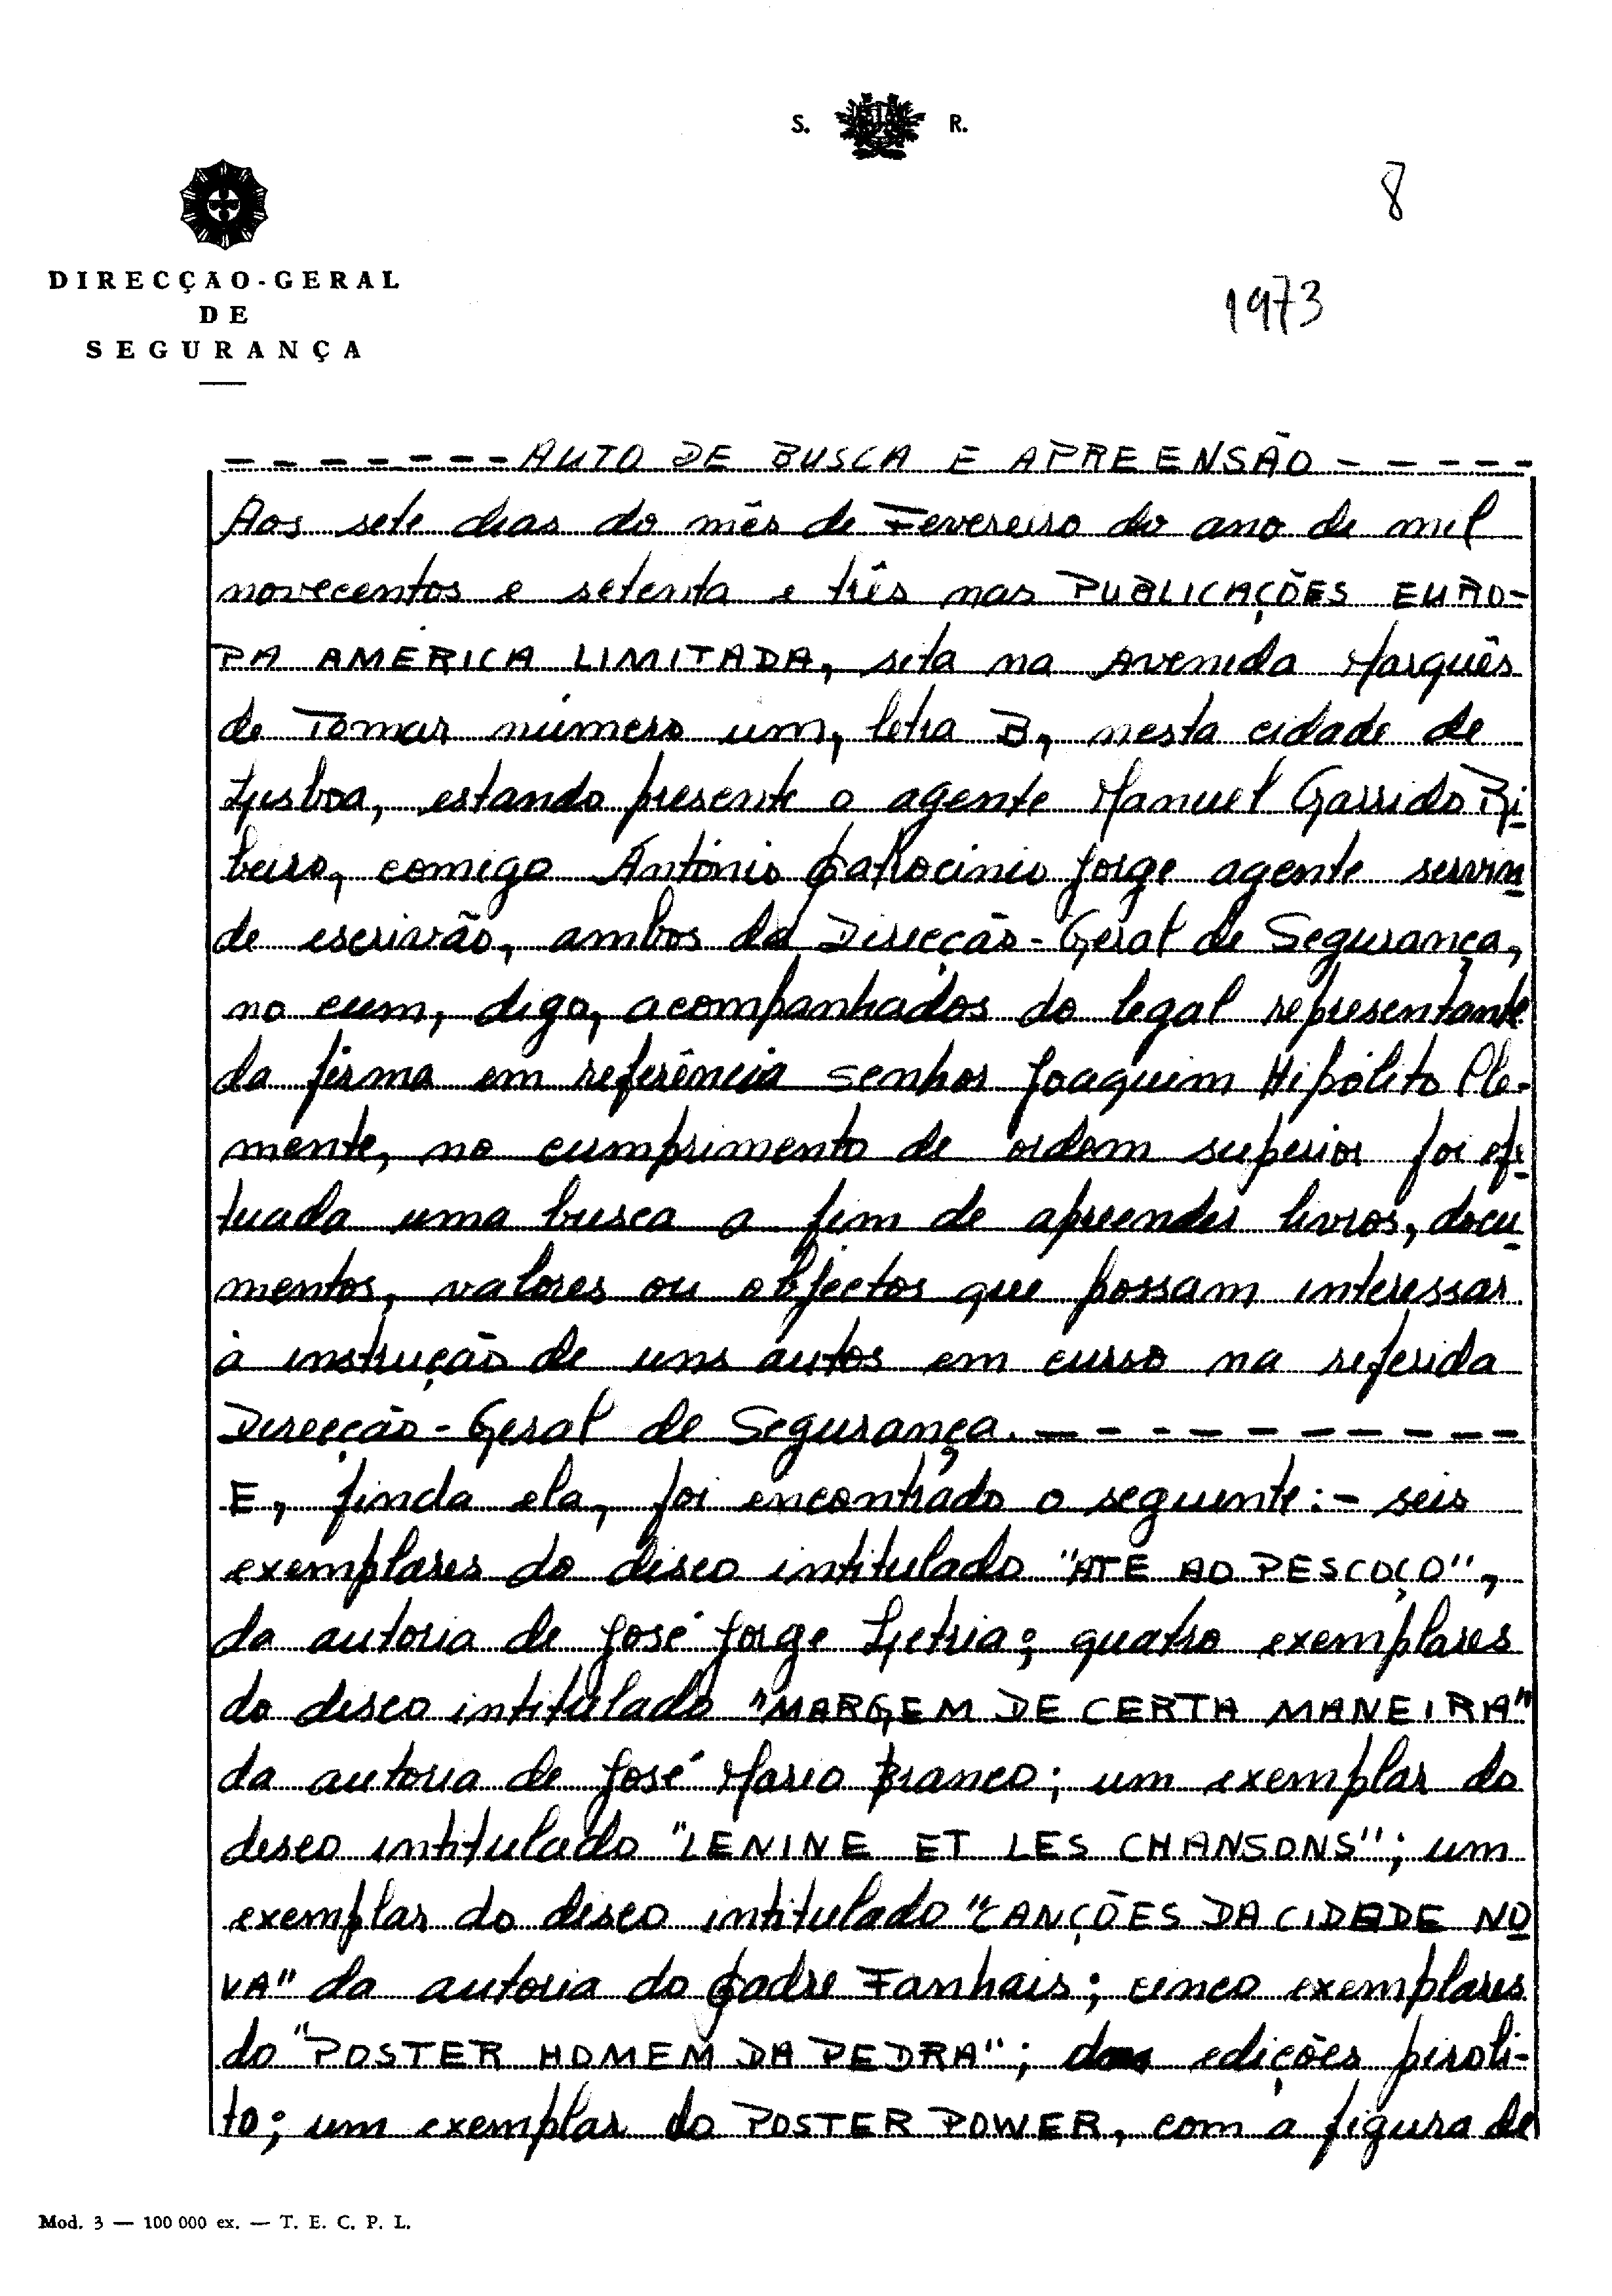 S. R.
8
DIRECÇÃO-GERAL
DE
SEGURANÇA
1973
- - - - - - - AUTO DE BUSCA E APREENSÃO - - - - -
Aos sete dias do mês de Fevereiro do ano de mil
novecentos e setenta e três nas PUBLICAÇÕES EURO-
PA AMÉRICA LIMITADA, sita na Avenida Marquês
de Tomar número um, letra B, nesta cidade de
Lisboa, estando presente o agente Manuel Garrido Ri
beiro, comigo António Patrocínio Jorge agente servin
de escrivão, ambos da Direcção-Geral de Segurança,
no cum, digo, acompanhados do legal representante
da firma em referência senhor Joaquim Hipólito Cle-
mente, no cumprimento de ordem superior foi efe
tuada uma busca a fim de apreender livros, docu
mentos, valores ou objectos que possam interessar
à instrução de uns autos em curso na referida
Direcção-Geral de Segurança. - - - - - - - - - -
E, finda ela, foi encontrado o seguinte:- seis
exemplares do disco intitulado "ATE AO PESCOÇO",
da autoria de José Jorge Letria; quatro exemplares
do disco intitulado "MARGEM DE CERTA MANEIRA"
da autoria de José Mario Branco; um exemplar do
disco intitulado "LENINE ET LES CHANSONS"; um
exemplar do disco intitulado "CANÇÕES DA CIDADE NO
VA" da autoria do Padre Fanhais; cinco exemplares
do "POSTER HOMEM DA PEDRA"; das edições piroli-
to; um exemplar do POSTER POWER, com a figura de
Mod. 3 — 100 000 ex. — T. E. C. P. L.